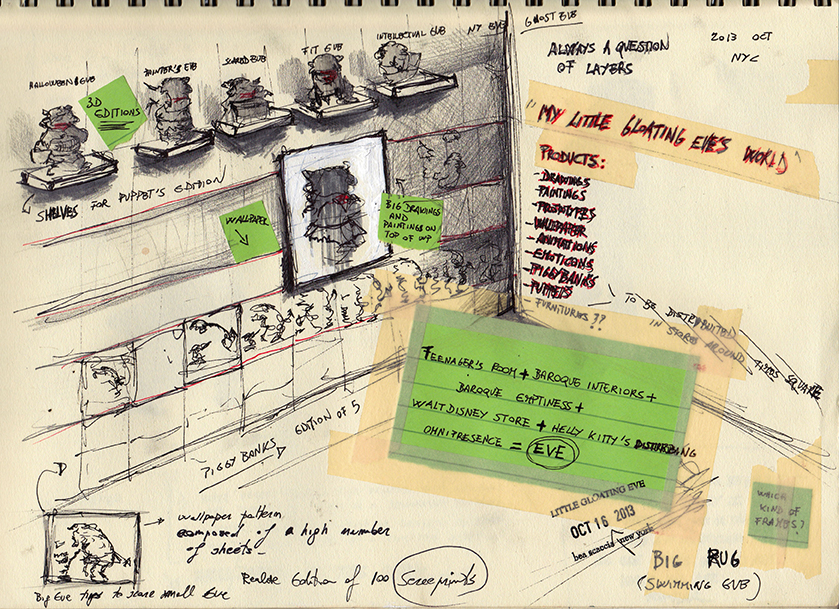 GHOST EVE
ALWAYS A QUESTION
OF LAYERS
2013 OCT
NYC
HALLOWEEN EVE
PAINTER'S EVE
SCARED EVE
FIT EVE
INTELLECTUAL EVE
NY EVE
3D
EDITIONS
SHELVES FOR PUPPET'S EDITION
WALLPAPER
BIG DRAWINGS
AND
PAINTINGS ON
TOP OF WP
"MY LITTLE GLOATING EVE'S WORLD"
PRODUCTS:
- DRAWINGS
- PAINTINGS
- PROTOTYPES
- WALLPAPER
- ANIMATIONS
- EMOTICONS
- PIGGYBANKS
- PUPPETS
- FURNITURES??
TO BE DISTRIBUTED
IN STORES AROUND
TIMES SQUARE
TEENAGER'S ROOM + BAROQUE INTERIORS +
BAROQUE EMPTINESS +
WALT DISNEY STORE + HELLY KITTY'S DISTURBING
OMNIPRESENCE = EVE
PIGGY BANKS EDITION OF 5
wallpaper pattern
composed of a high number
of sheets
Realize Edition of 100 Screenprints
Big Eve tries to scare small Eve
LITTLE GLOATING EVE
OCT 16 2013
bea scaccia new york
WHICH
KIND OF
FRAMES?
BIG RUG
(SWIMMING EVE)